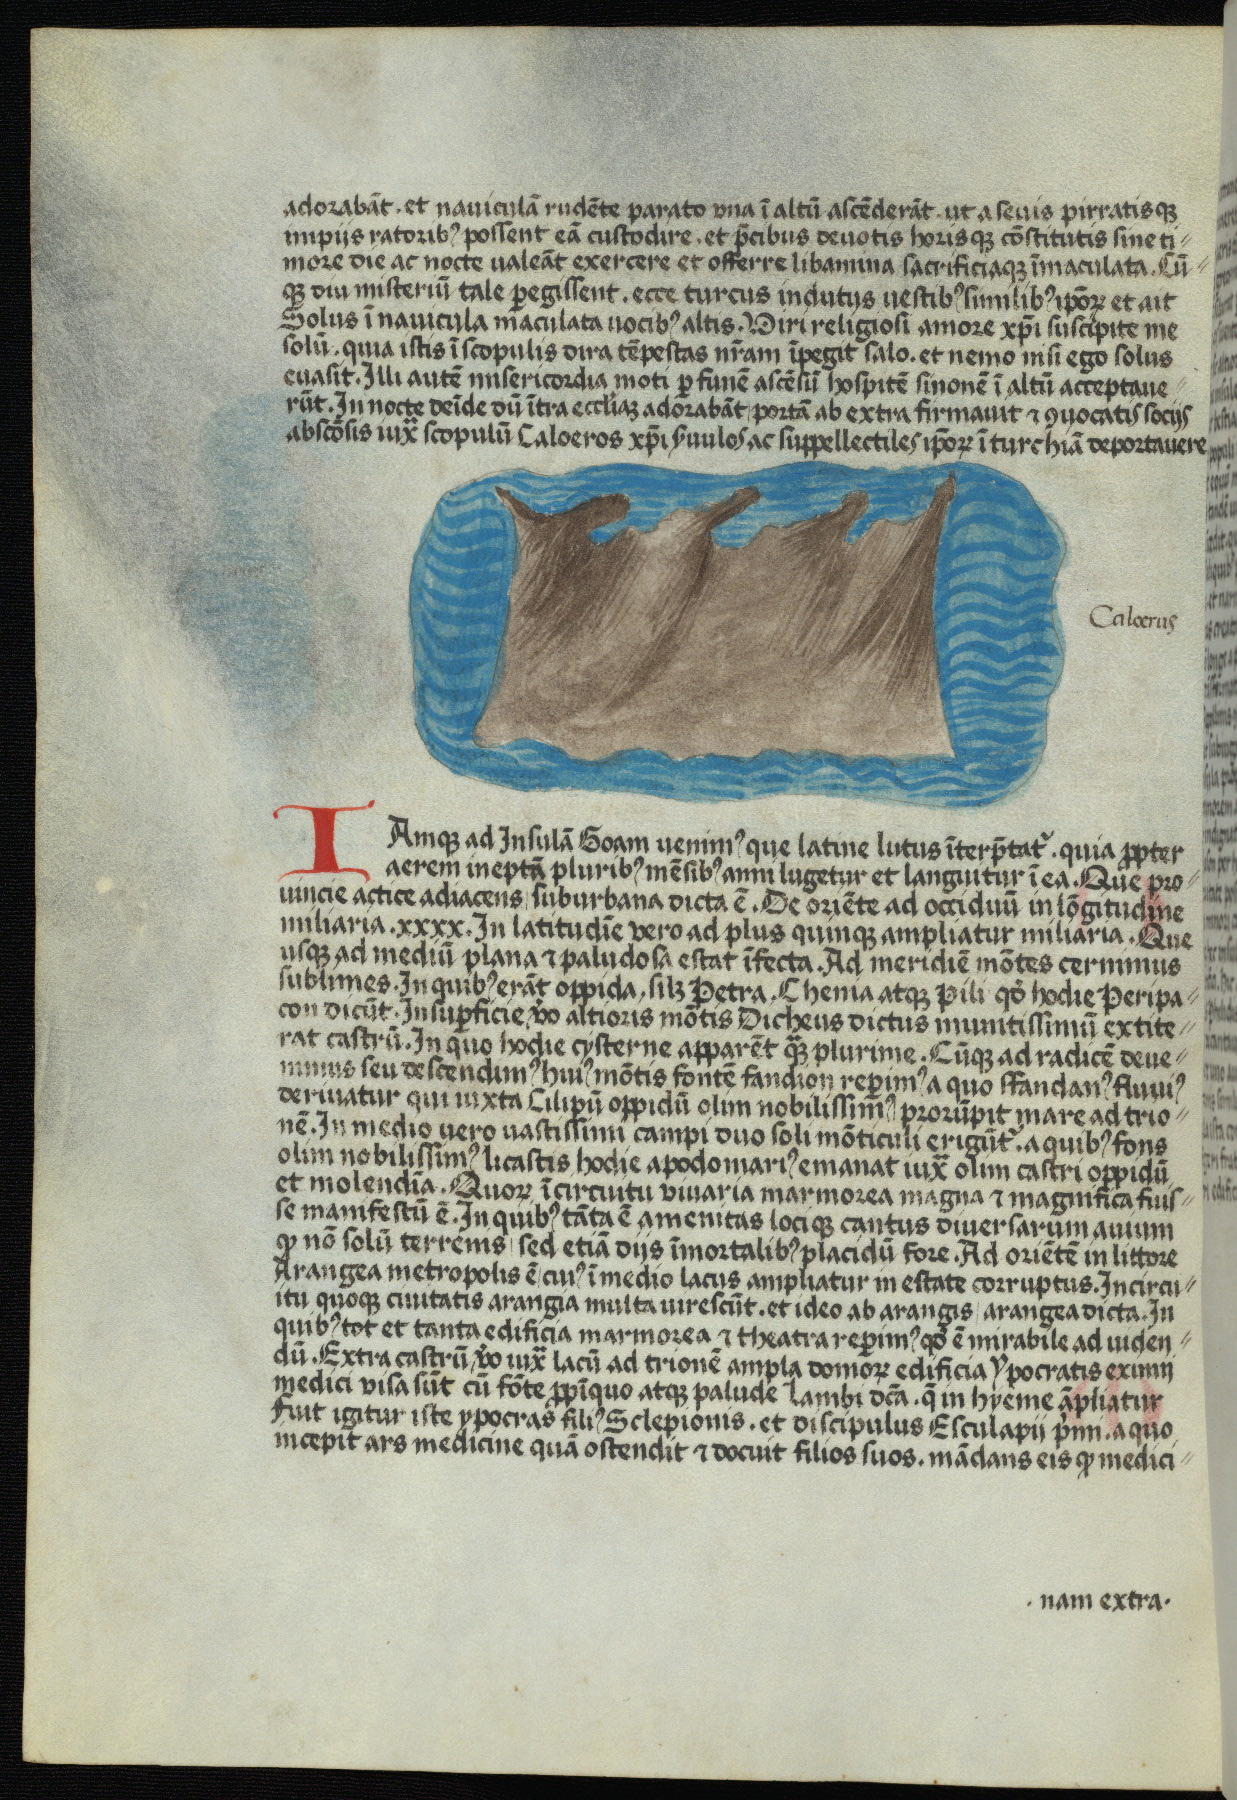 adorabāt · et nauiculā rudēte parato vna ī altū ascēderāt · ut a seuis pirratisqꝫ
impijs ratoribꝰ possent eā custodire · et p̄cibus deuotis horisqꝫ cōstitutis sine ti〃
more die ac nocte ualeāt exercere et offerre libamina sacrificiaqꝫ īmaculata · Cū〃
qꝫ diu misteriū tale ꝑegissent · ecce turcus indutus uestibꝰ similibꝰ ipōꝝ et ait
Solus ī nauicula maculata uocibꝰ altis · Viri religiosi amore xp̄i suscipite me
solū · quia istis ī scopulis dira tēpestas nr̄am īpegit salo · et nemo nisi ego solus
euasit · Illi autē misericordia moti ꝑ funē ascēsū hospitē sinonē ī altū acceptaue〃
rūt · In nocte deīde dū ītra eccl'iaꝫ adorabāt portā ab extra firmauit ⁊ ꝯuocatis socijs
abscōsis iux̄ scopulū Caloeros xp̄i ẏuulos ac suppellectiles ip̄oꝝ ī turchiā deportauere
Caloerus
IAmqꝫ ad Insulā Goam uenimꝰ que latine lutus īterp̄tat᷑ · quia ꝓpter
aerem ineptā pluribꝰ mēsibꝰ anni lugetur et languitur ī ea · Que pro〃
uincie actice adiacens suburbana dicta ē · De oriēte ad occiduū in lōgitudine
miliaria · xxxx · In latitudīe vero ad plus quinqꝫ ampliatur miliaria · Que
usqꝫ ad mediū plana ⁊ paludosa estat īfecta · Ad meridiē mōtes cernimus
sublimes · In quibꝰ erāt oppida · silꝫ Petra · Chenia atqꝫ Pili qđ hodie Peripa〃
con dicūt · In suꝑficie v̊o altioris mōtis Dicheus dictus munitissimū extite〃
rat castrū · In quo hodie cysterne apparēt qꝫ̄ plurime · Cūqꝫ ad radicē deue〃
nimus seu descendimꝰ huiꝰ mōtis fontē fandion reꝑimꝰ a quo ffandanꝰ fluuiꝰ
deriuatur qui iuxta Cilipū oppidū olim nobilissimꝰ prorūpit mare ad trio〃
nē · In medio uero uastissimi campi duo soli mōticuli erigūt᷑ · a quibꝰ fons
olim nobilissimꝰ licastis hodie apodomariꝰ emanat iux̄ olim castri oppidū
et molendīa · Quoꝝ ī circuitu viuaria marmorea magna ⁊ magnifica fuis〃
se manifestū ē · In quibꝰ tāta ē amenitas loci qꝫ cantus diuersarum auium
ꝙ nō solū terrenis sed etiā dijs īmortalibꝰ placidū fore · Ad oriētē in littore
Arangea metropolis ē cuiꝰ ī medio lacus ampliatur in estate corruptus · In circu〃
itu quoqꝫ ciuitatis arangia multa uirescūt · et ideo ab arangis arangea dicta · In
quibꝰ tot et tanta edificia marmorea ⁊ theatra reꝑimꝰ qđ ē mirabile ad uiden〃
dū · Extra castrū v̊o iux̄ lacū ad trionē ampla domoꝝ edificia ypocratis eximij
medici visa sūt cū fōte ꝓpīquo atqꝫ palude Lambi dc̄a · q̄ in hyeme āpliatur
Fuit igitur iste ypocras filiꝰ Sclepionis · et discipulus Esculapij p̄mi · a quo
incepit ars medicine quā ostendit ⁊ docuit filios suos · mādans eis ꝙ medici〃
· nam extra ·